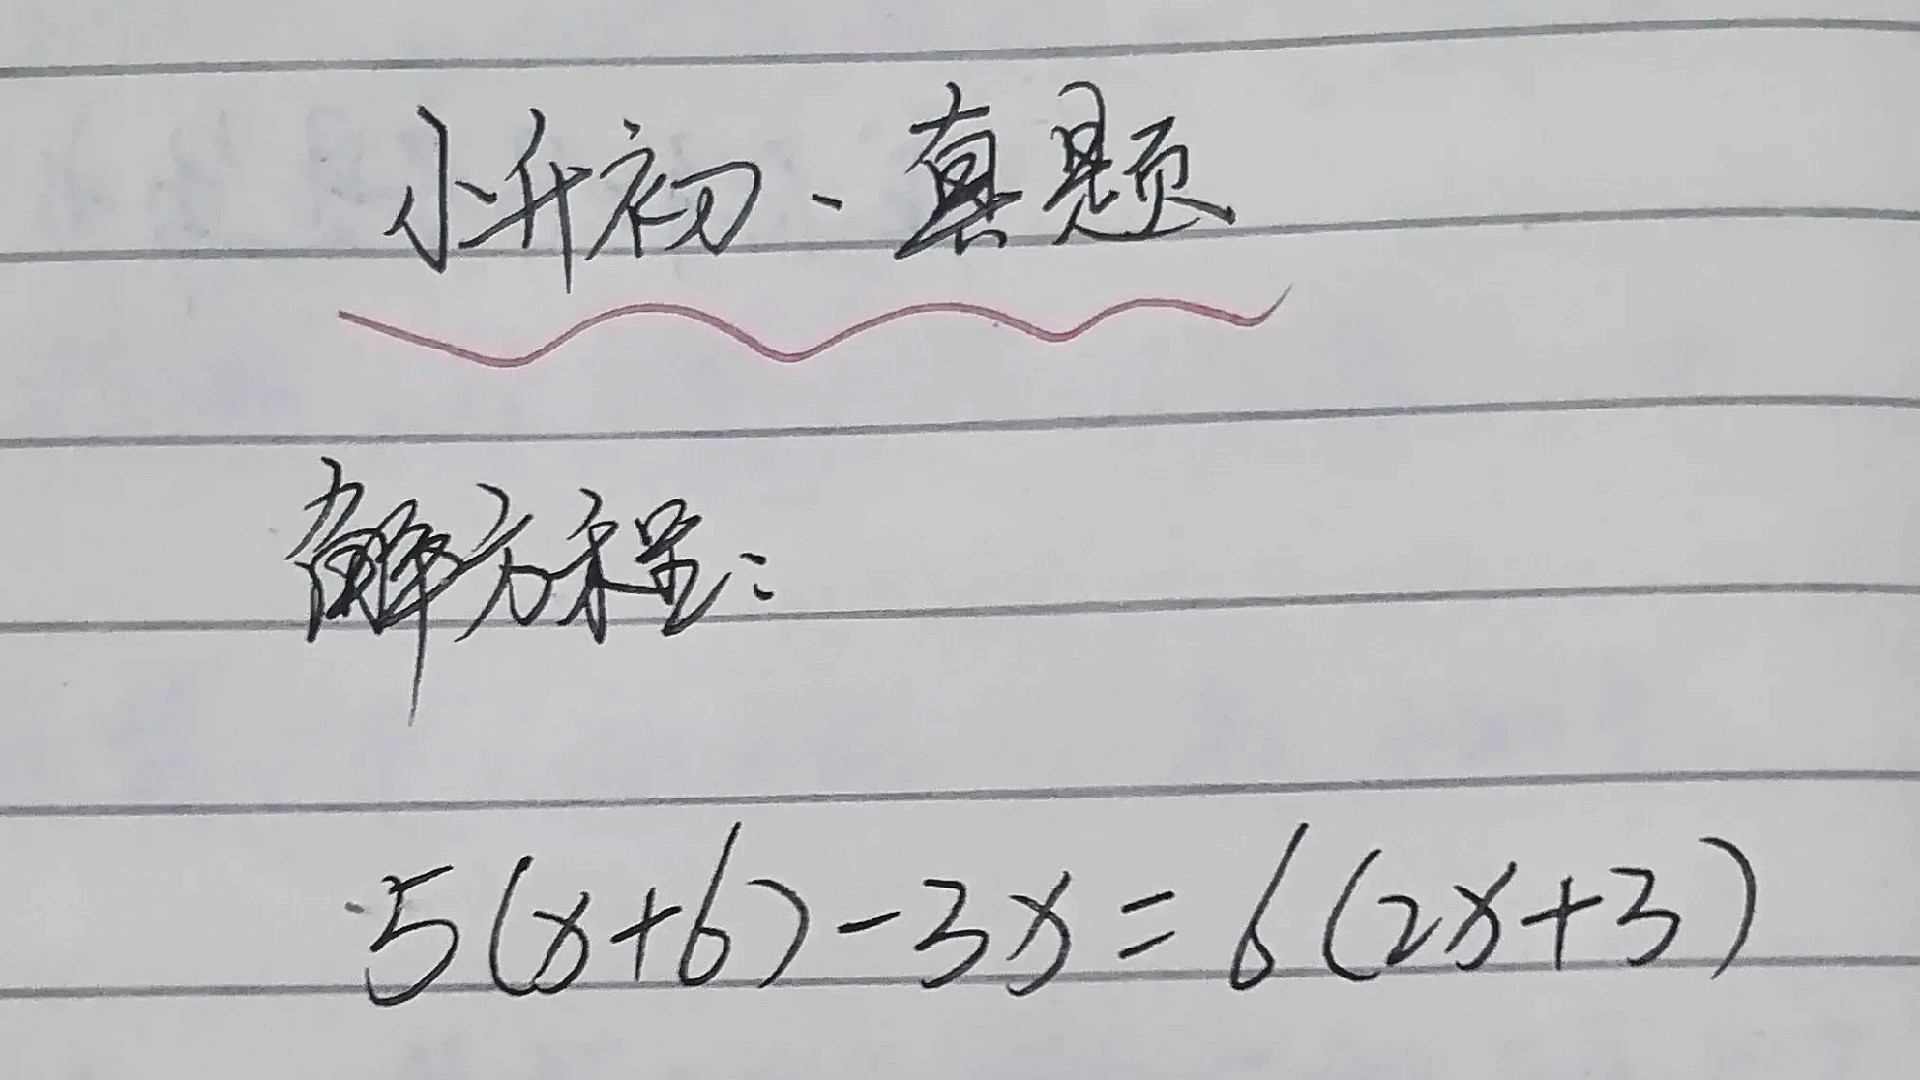 小升初、真题
解方程:
5(x+6)-3x=6(2x+3)